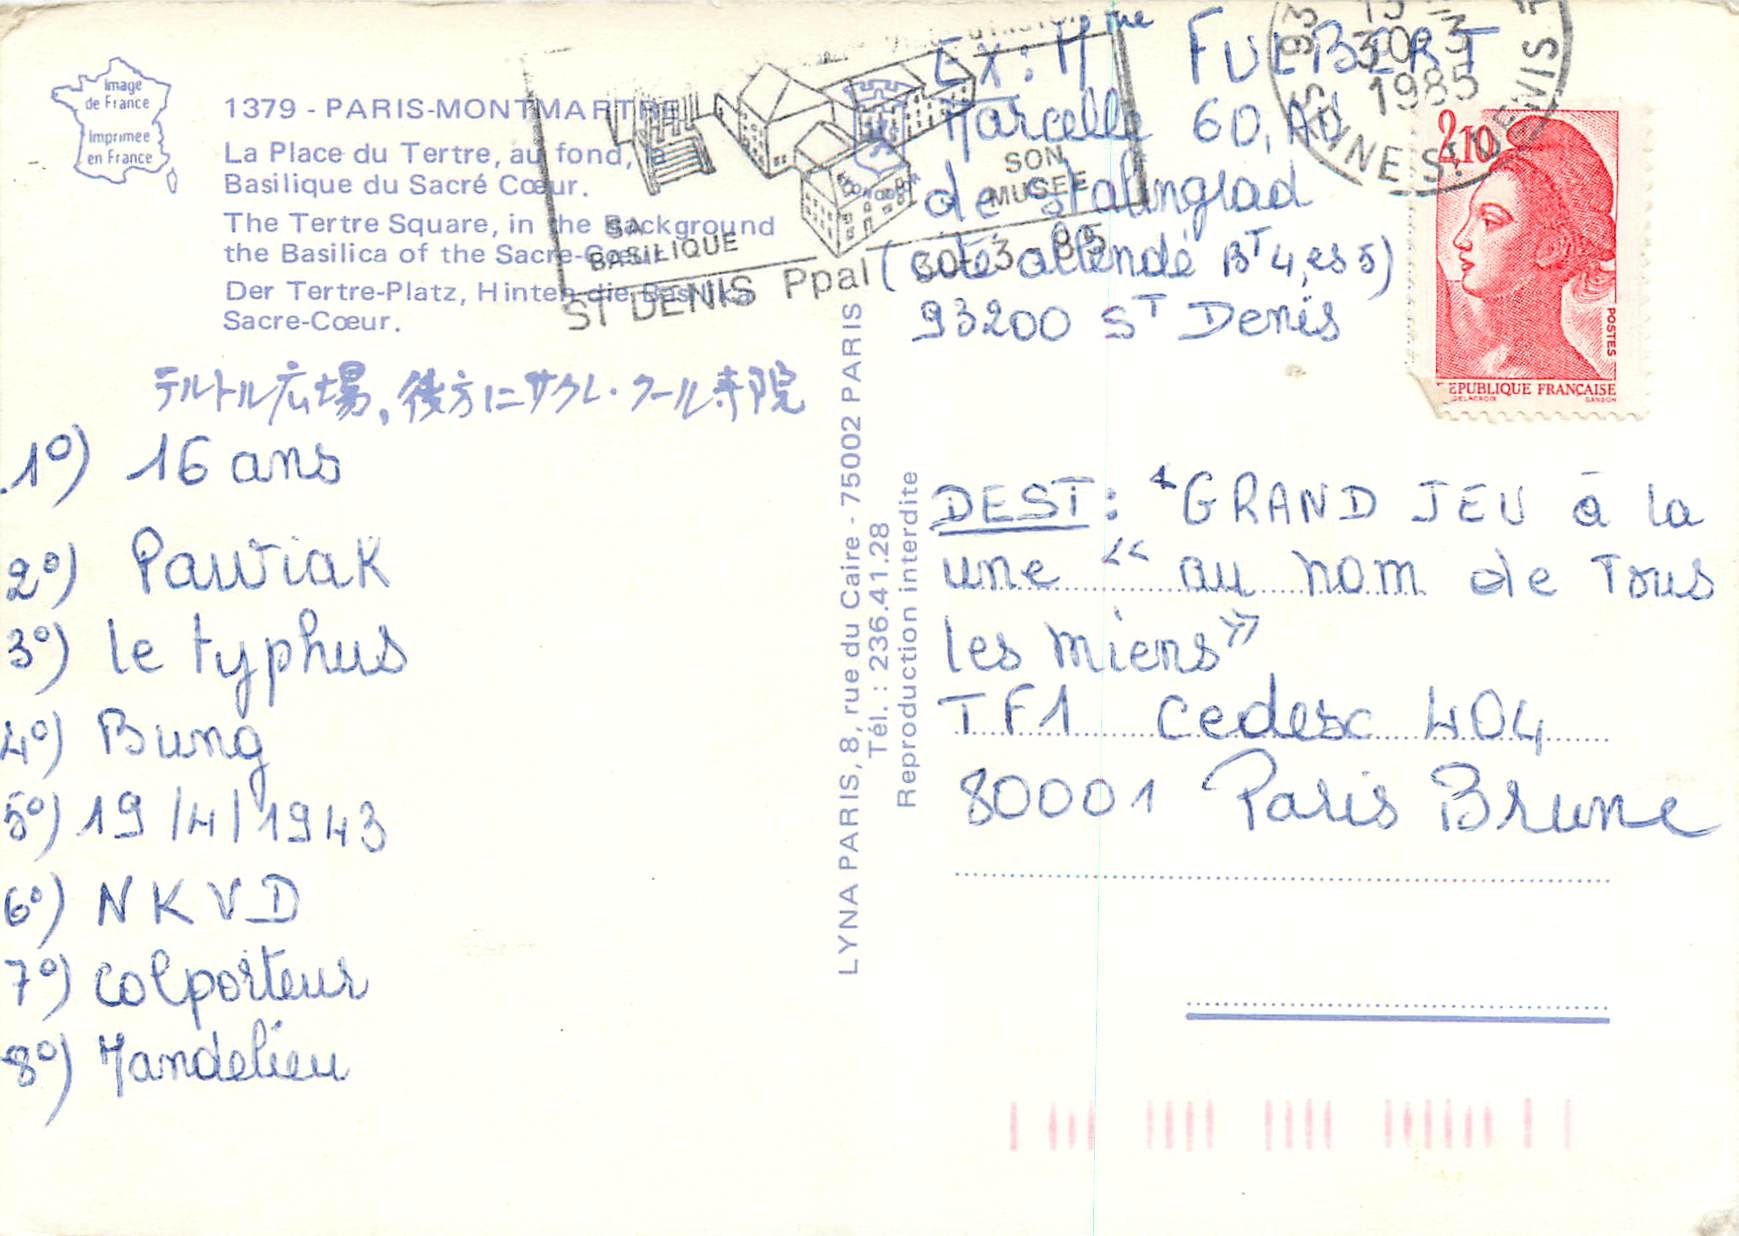 Image
de France
Imprimée
en France
1379 - PARIS-MONTMARTRE
La Place du Tertre, au fond, la
Basilique du Sacré Cœur.
The Tertre Square, in the Background
the Basilica of the Sacre-Cœur.
Der Tertre-Platz, Hinten die Basilika
Sacre-Cœur.
テルトル広場、後方にサクレ・クール寺院
1º) 16 ans
2º) Pawiak
3º) le typhus
4º) Bung
5º) 19/4/1943
6º) NKVD
7º) colporteur
8º) Mandelieu
SA
BASILIQUE
SON
MUSÉE
ST DENIS Ppal
30-3 85
93
30-3
1985
SEINE ST DENIS
LYNA PARIS, 8, rue du Caire - 75002 PARIS
Tél. : 236.41.28
Reproduction interdite
Ex: Mme FULBERT
Marcelle 60, Av
de Stalingrad
(cité allendé BT 4, es 5)
93200 ST Denis
2,10
POSTES
REPUBLIQUE FRANÇAISE
DELACROIX
GANDON
DEST: "GRAND JEU à la
une "au nom de Tous
les miens"
TF1 cedesc 404
80001 Paris Brune